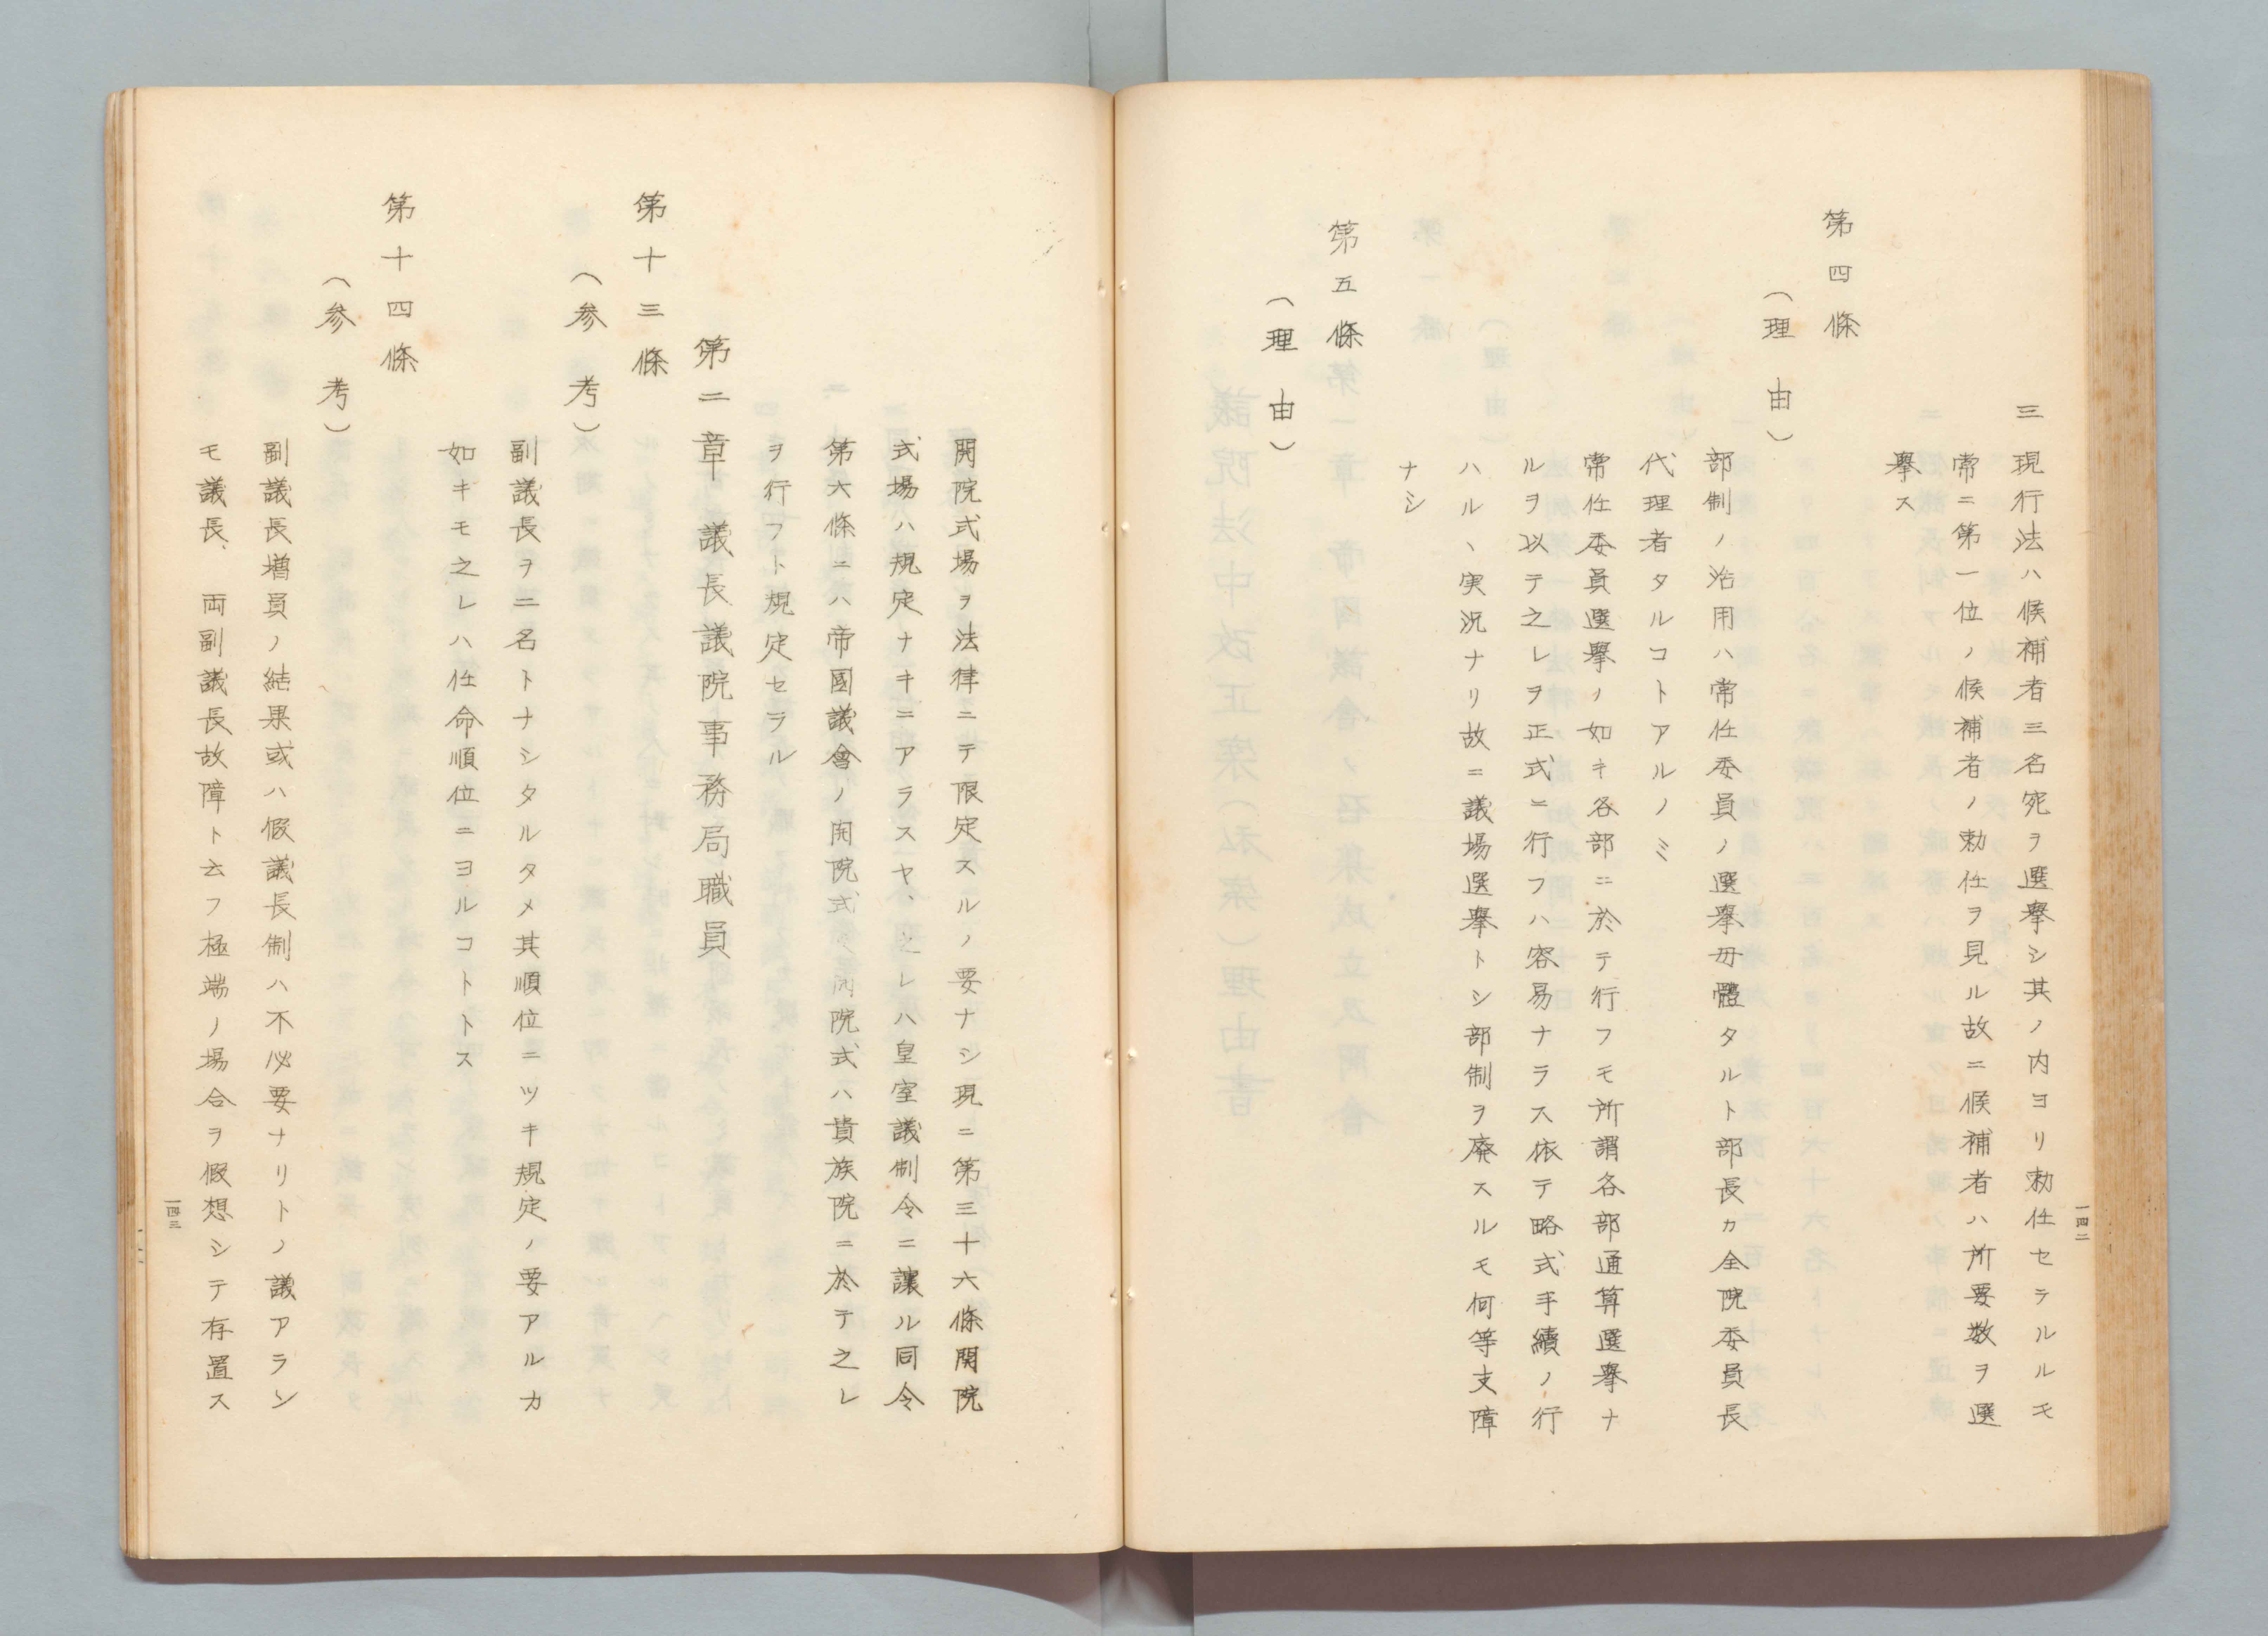 三 現行法ハ候補者三名宛ヲ選擧シ其ノ内ヨリ勅任セラルルモ
常ニ第一位ノ候補者ノ勅任ヲ見ル故ニ候補者ハ所要数ヲ選
擧ス
第四條
（理由）
部制ノ活用ハ常任委員ノ選擧母體タルト部長カ全院委員長
代理者タルコトアルノミ
常任委員選擧ノ如キ各部ニ於テ行フモ所謂各部通算選擧ナ
ルヲ以テ之レヲ正式ニ行フハ容易ナラス依テ略式手續ノ行
ハル丶実況ナリ故ニ議場選擧トシ部制ヲ廃スルモ何等支障
ナシ
第五條
（理由）
一四二
開院式場ヲ法律ニテ限定スルノ要ナシ現ニ第三十六條閉院
式場ハ規定ナキニアラスヤ、之レハ皇室議制令ニ讓ル同令
第六條ニハ帝國議會ノ開院式及閉院式ハ貴族院ニ於テ之レ
ヲ行フト規定セラル
第二章 議長議院事務局職員
第十三條
（参考）
副議長ヲ二名トナシタルタメ其順位ニツキ規定ノ要アルカ
如キモ之レハ任命順位ニヨルコトトス
第十四條
（参考）
副議長増員ノ結果或ハ假議長制ハ不必要ナリトノ議アラン
モ議長、両副議長故障ト云フ極端ノ場合ヲ假想シテ存置ス
一四三